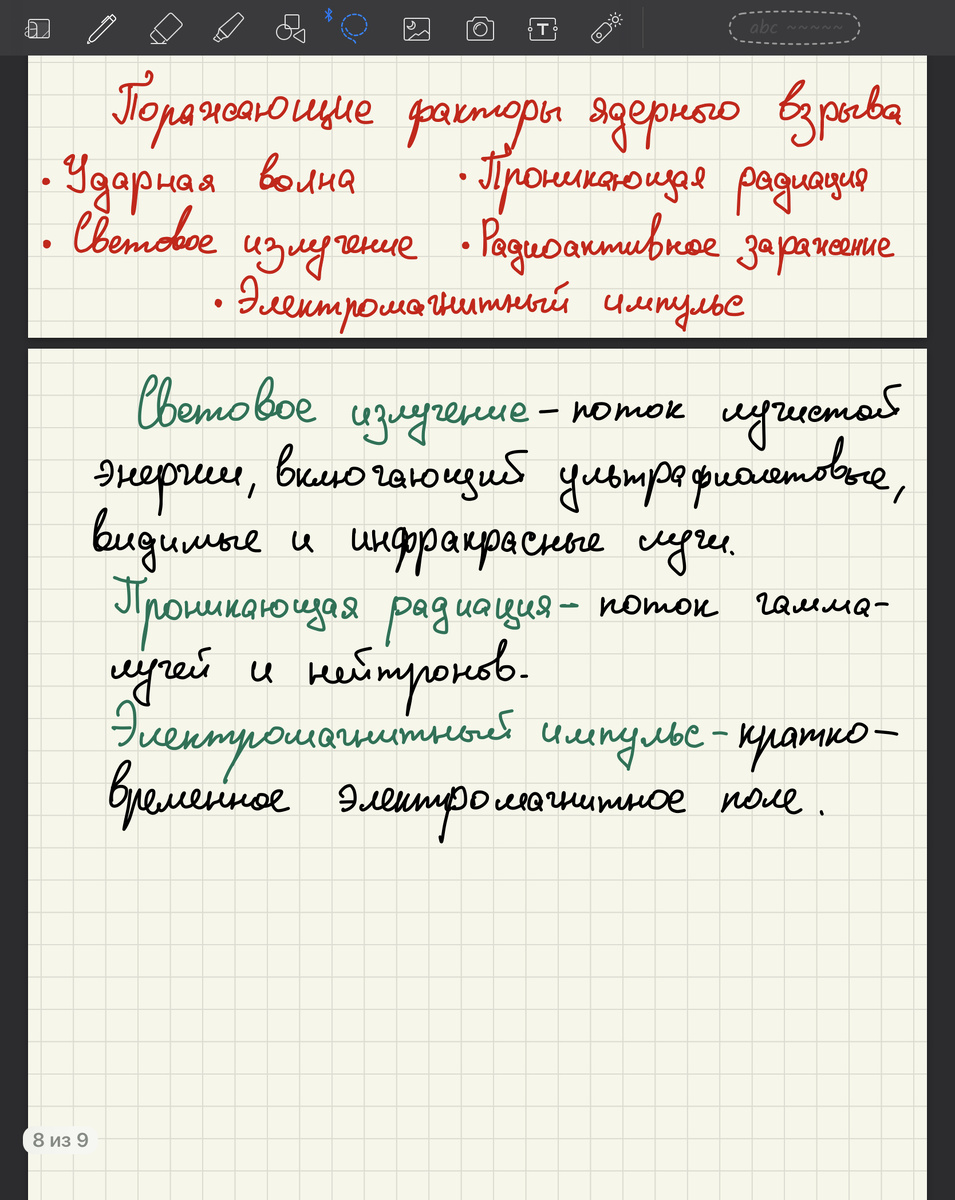 abc ~~~~~
Поражающие факторы ядерного взрыва
• Ударная волна • Проникающая радиация
• Световое излучение • Радиоактивное заражение
• Электромагнитный импульс
Световое излучение – поток лучистой
энергии, включающий ультрафиолетовые,
видимые и инфракрасные лучи.
Проникающая радиация – поток гамма-
лучей и нейтронов.
Электромагнитный импульс – кратко-
временное электромагнитное поле.
8 из 9